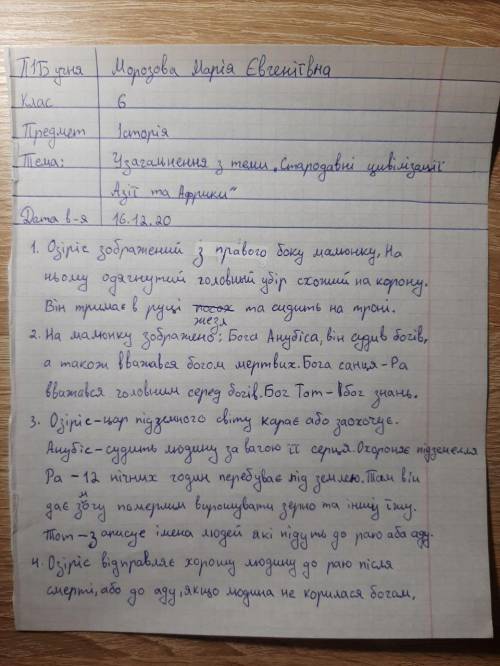 П1Б учня Морозова Марія Євгеніївна
Клас 6
Предмет Історія
Тема: Узагальнення з теми „Стародавні цивілізації
Азії та Африки"
Дата в-я 16.12.20
1. Озіріс зображений з правого боку малюнку. На
ньому одягнутий головный убір схожий на корону.
Він тримає в руці жезл та сидить на троні.
2. На малюнку зображено: Бога Анубіса, він судив богів,
а також вважався богом мертвих. Бога санця - Ра
вважався головним серед богів. Бог Тот - бог знань.
3. Озіріс - цар підземного світу карає або заохочує.
Анубіс - судить людину за вагою її серця. Охороняє підземелля
Ра - 12 нічних годин перебуває під землею. Там він
дає змогу померлим вирощувати зерно та іншу їжу.
Тот - записує імена людей які підуть до раю або аду.
4. Озіріс відправляє хорошу людину до раю після
смерті, або до аду, якщо людина не корилася богам.